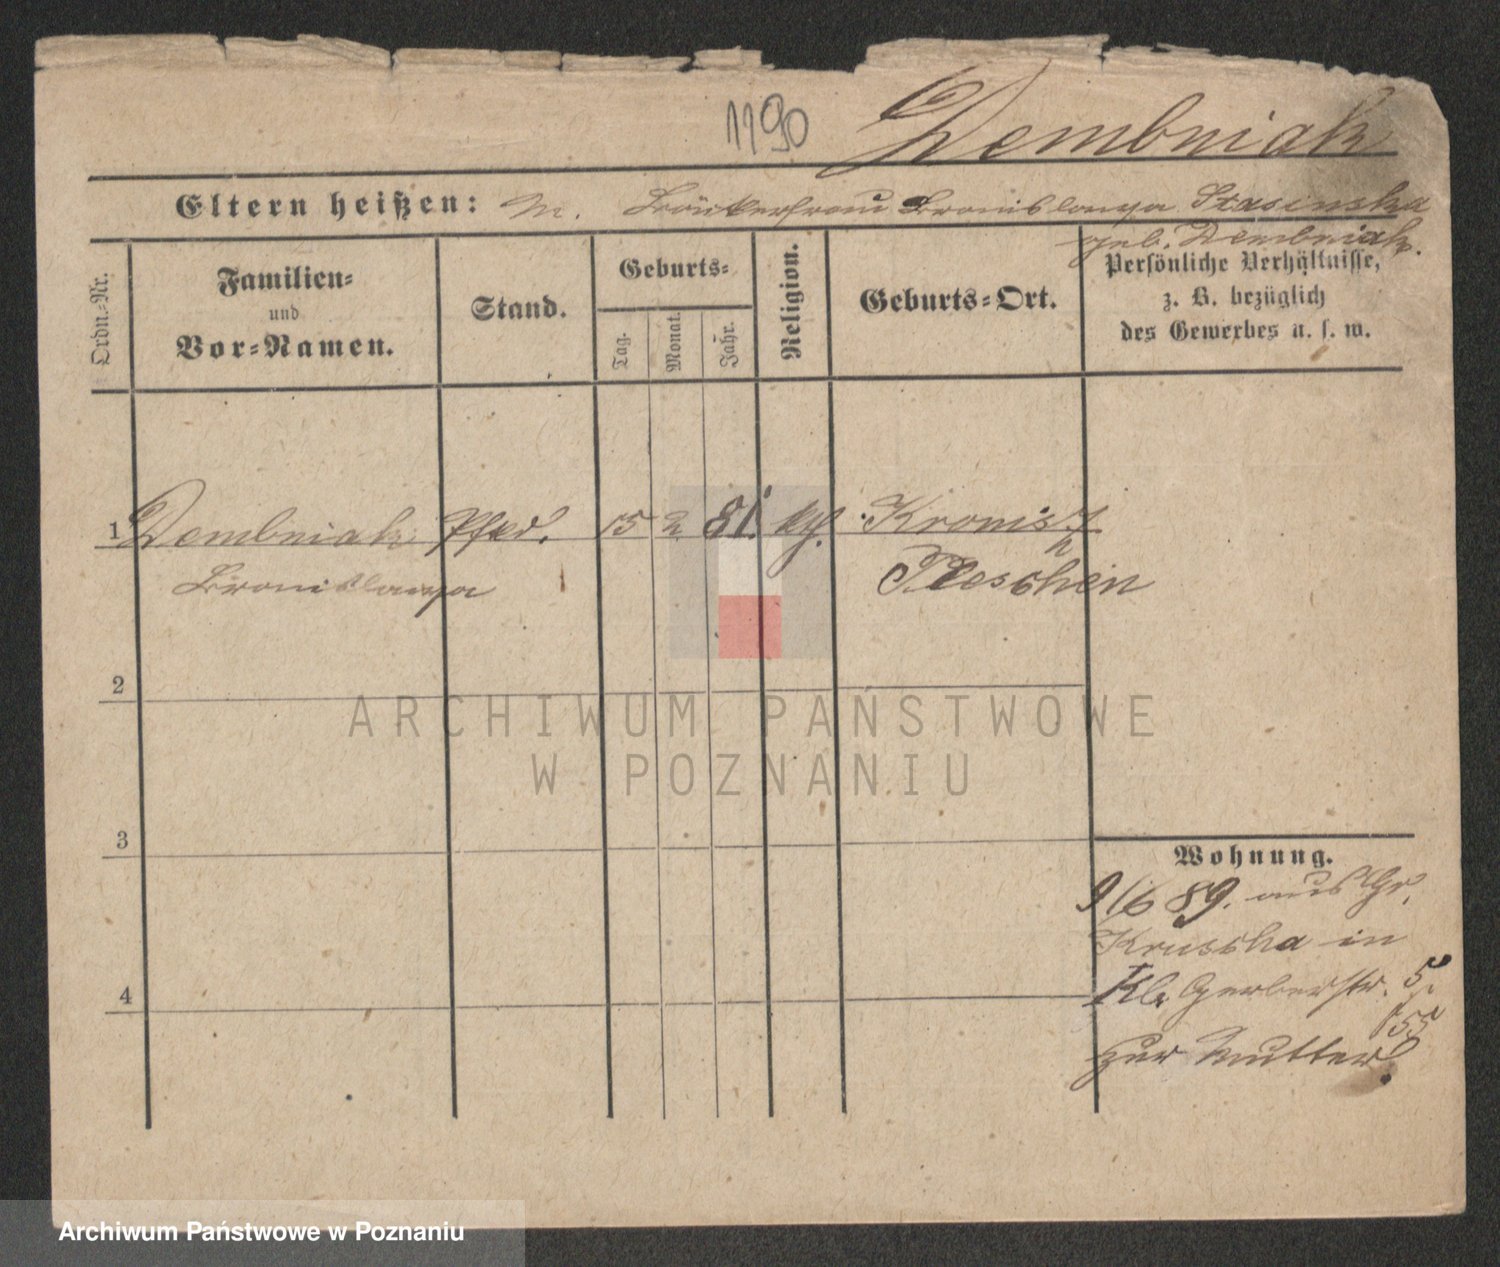 1190 Dembniak
Eltern heißen: M. Bronislawa Stasinska
geb. Dembniak.
Ordn.-Nr.
Familien-
und
Vor-Namen.
Stand.
Geburts-
Tag.
Monat.
Jahr.
Religion.
Geburts-Ort.
Persönliche Verhältnisse,
z. B. bezüglich
des Gewerbes u. s. w.
1 Dembniak 15 2 81. kth.
Bronislawa Pleschen
2
ARCHIWUM PAŃSTWOWE
W POZNANIU
3
Wohnung.
9/6 89. aus Gr.
Kruscha in
4
Kl. Gerberstr. 5.
zur Mutter
Archiwum Państwowe w Poznaniu